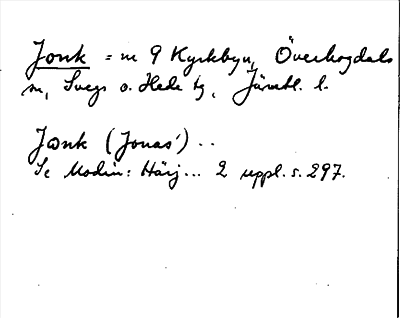 Jonk = m 9 Kyrkbyn, Överhogdals
m, Svegs o. Hede tg, Jämtl. l.
Jonk (Jonas') ..
Se Modin: Härj... 2 uppl. s. 297.